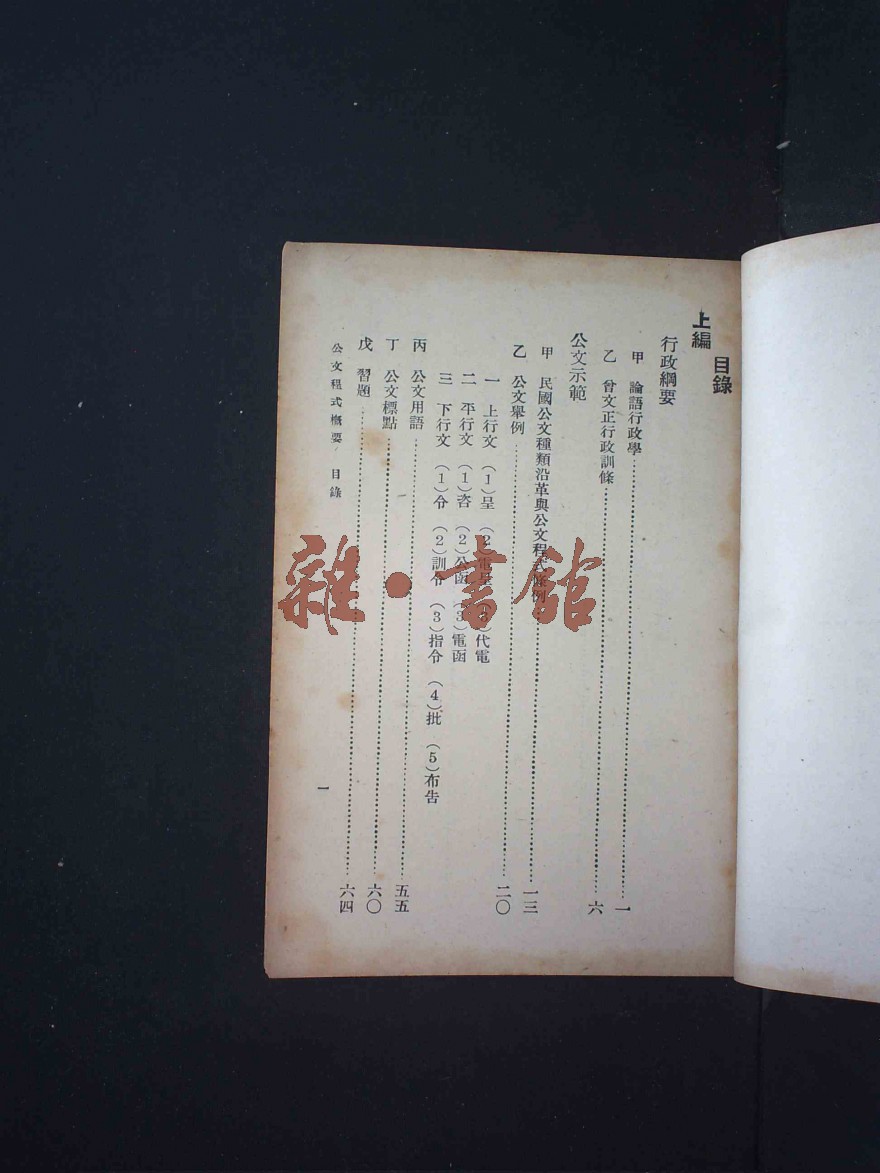 目錄
上編
行政綱要
甲　論語行政學……一
乙　曾文正行政訓條……六
公文示範
甲　民國公文種類沿革與公文程式條例……一三
乙　公文舉例……二〇
一　上行文　(1)呈　(2)電呈　(3)代電
二　平行文　(1)咨　(2)公函　(3)電函
三　下行文　(1)令　(2)訓令　(3)指令　(4)批　(5)布告
丙　公文用語……五五
丁　公文標點……六〇
戊　習題……六四
公文程式概要　目錄
一
雜·書館